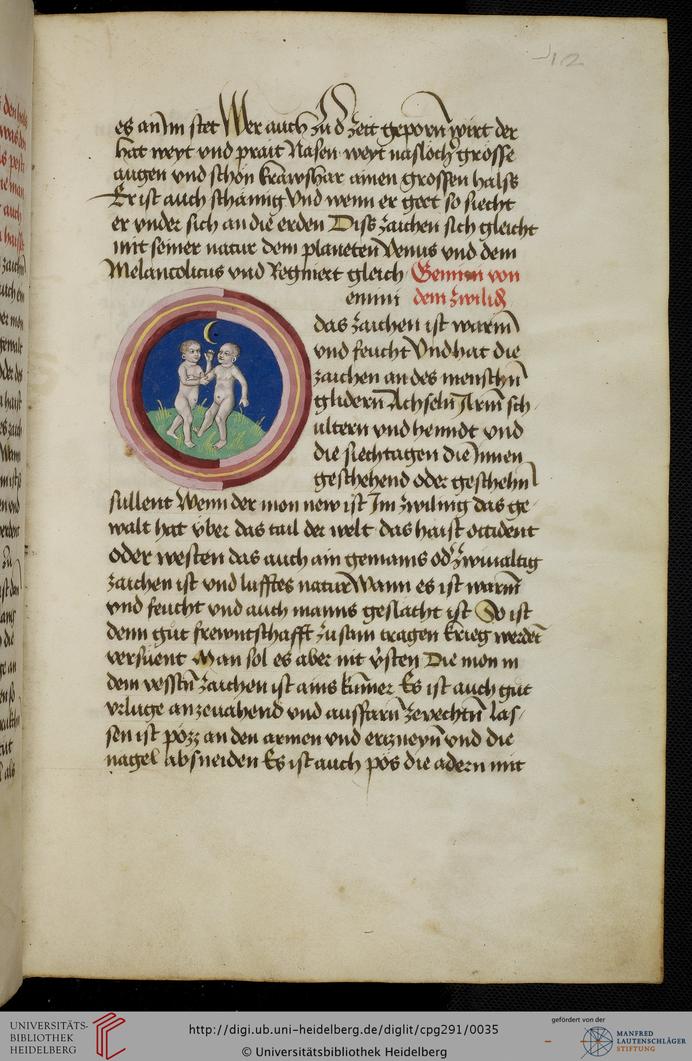 12
es an Im stet Wer auch zu d zeit geporn wirt der
hat weyt vnd prait Nasen weyt naslöch grosse
augen vnd schön krawshar ainen grossen halss
Er ist auch schamig Vnd wenn er geet so siecht
er vnder sich an die erden Diss zaichen sich gleicht
mit seiner natur dem planeten Venus vnd dem
Melancolicus vnd Regniert gleich Gemini von
dem zwiling
das zaichen ist warm
vnd feucht Vnd hat die
zaichen an des menschn
glidern Achseln Arm sch
ultern vnd henndt vnd
die siechtagen die Innen
geschehend oder geschehn
süllent Wenn der mon new ist Im zwiling das ge
walt hat vber das tail der welt das haist occident
oder westen das auch ain gemains od zwiualtig
zaichen ist vnd lufftes natur Wann es ist warm
vnd feucht vnd auch manns geslächt ist So ist
denn gut frewntschafft zusam tragen krieg werdet
versüent Man sol es aber nit Die mon in
dem zaichen ist ains Es ist auch gut
vrluge an zeuahend vnd aussfarn zevechtn las
sen ist pözz an den armen vnd ertzneyn vnd die
nagel absneiden Es ist auch pös die adern mit
UNIVERSITÄTS-
BIBLIOTHEK
HEIDELBERG
http://digi.ub.uni-heidelberg.de/diglit/cpg291/0035
© Universitätsbibliothek Heidelberg
gefördert von der
MANFRED
LAUTENSCHLÄGER
STIFTUNG